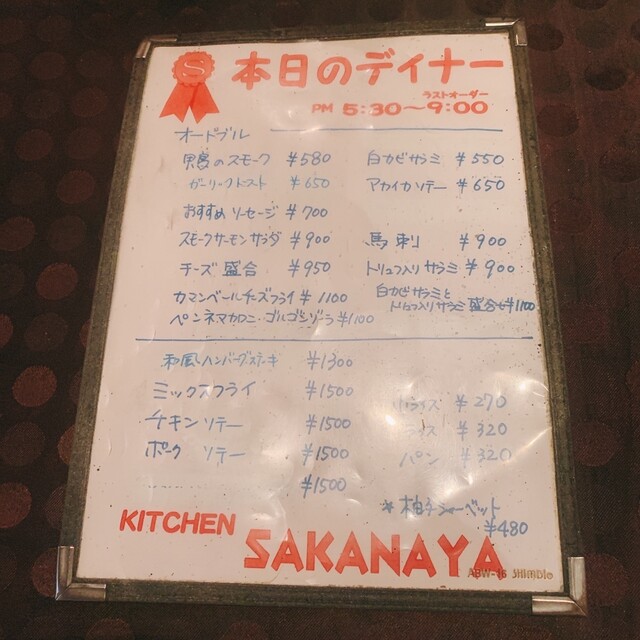 S 本日のディナー
ラストオーダー
PM 5:30〜9:00
オードブル
鴨のスモーク ¥580
白カビサラミ ¥550
ガーリックトースト ¥650
アカイカソテー ¥650
おすすめソーセージ ¥700
スモークサーモンサラダ ¥900
馬刺 ¥900
チーズ盛合 ¥950
トリュフ入りサラミ ¥900
カマンベールチーズフライ ¥1100
白カビサラミと
トリュフ入りサラミ盛合せ¥1100
ペンネマカロニ・ゴルゴンゾーラ¥1100
和風ハンバーグステーキ ¥1300
ミックスフライ ¥1500
小ライス ¥270
チキンソテー ¥1500
ライス ¥320
ポーク ソテー ¥1500
パン ¥320
¥1500
*柚子シャーベット
¥480
KITCHEN
SAKANAYA
ABW-16 SHIMBI